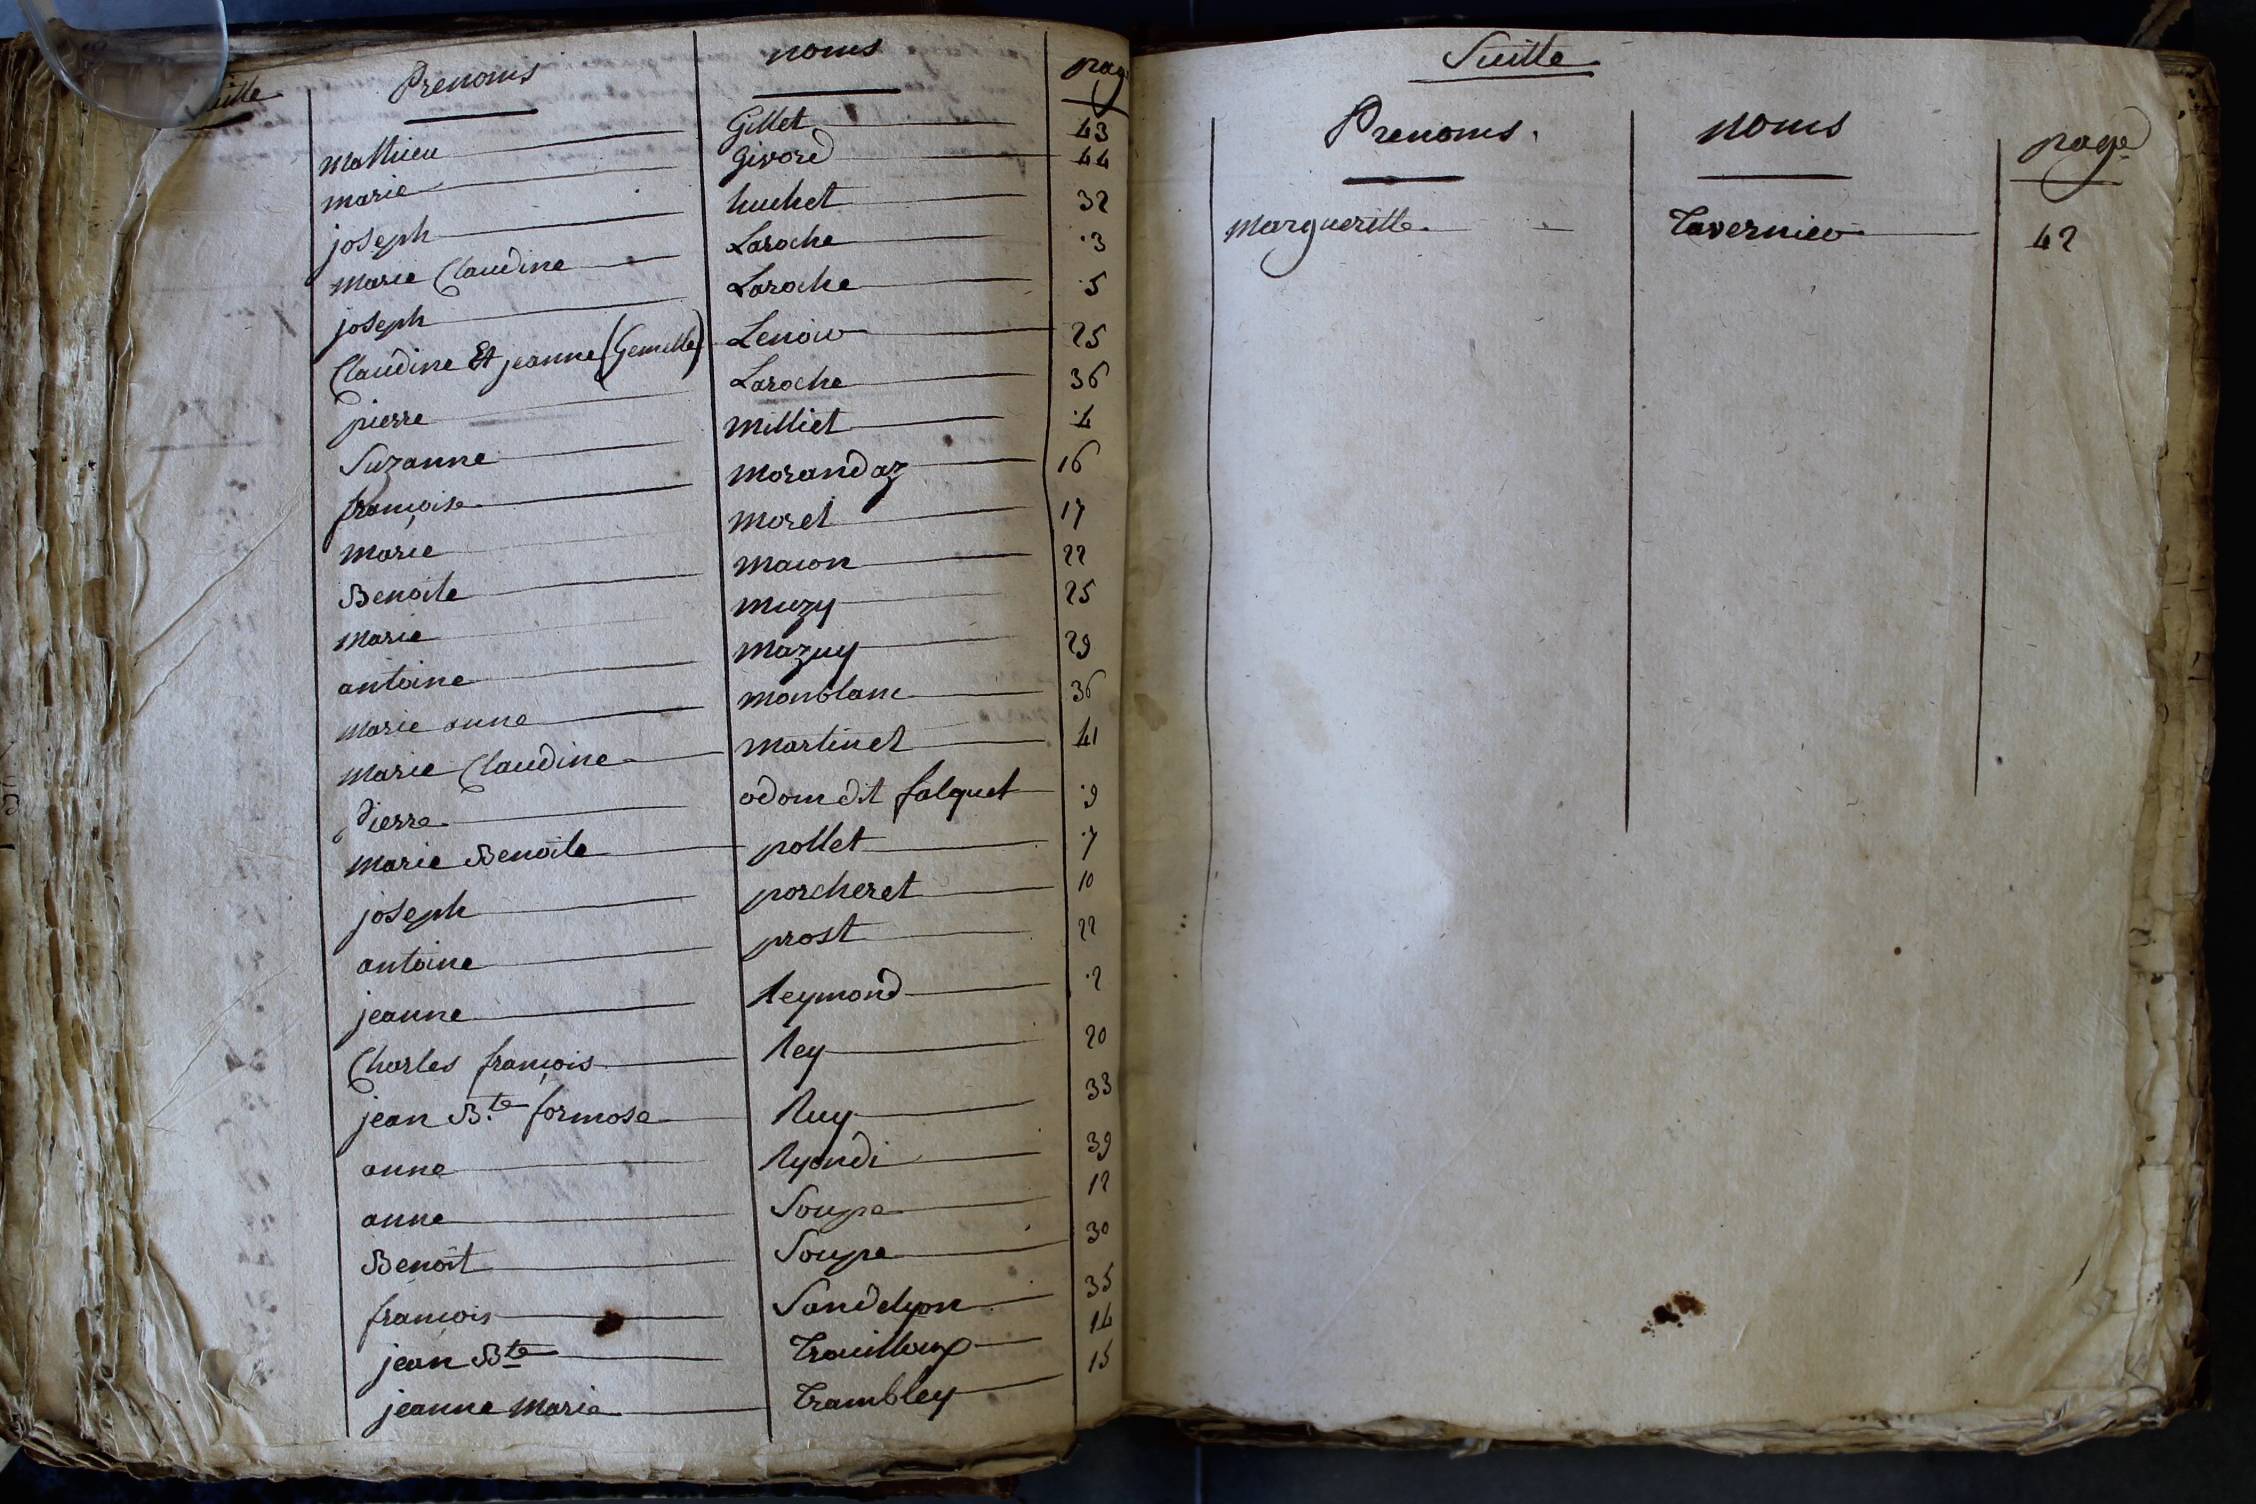 Suitte
Prenoms noms page
mathieu Gillet 43
marie Givord 44
joseph huchet 32
marie Claudine Laroche 3
joseph Laroche 5
Claudine Et jeanne (Gemelle) Lenoir 25
pierre Laroche 36
Suzanne milliet 4
françoise morandaz 16
marie morel 17
Benoite macon 22
marie muzy 25
antoine mazuy 29
marie anne monblanc 36
marie Claudine martinet 41
Pierre odom dit falquet 9
marie Benoite pollet 7
joseph porcheret 10
antoine prost 22
jeanne Reymond 2
Charles françois Rey 20
jean B.te formose Ruy 33
anne Ryondi 39
anne Soupe 12
Benoît Soupe 30
françois Sandelyon 35
jean Bte Trouilloux 14
jeanne marie Trambley 15
Suitte
Prenoms noms page
margueritte Tavernier 42